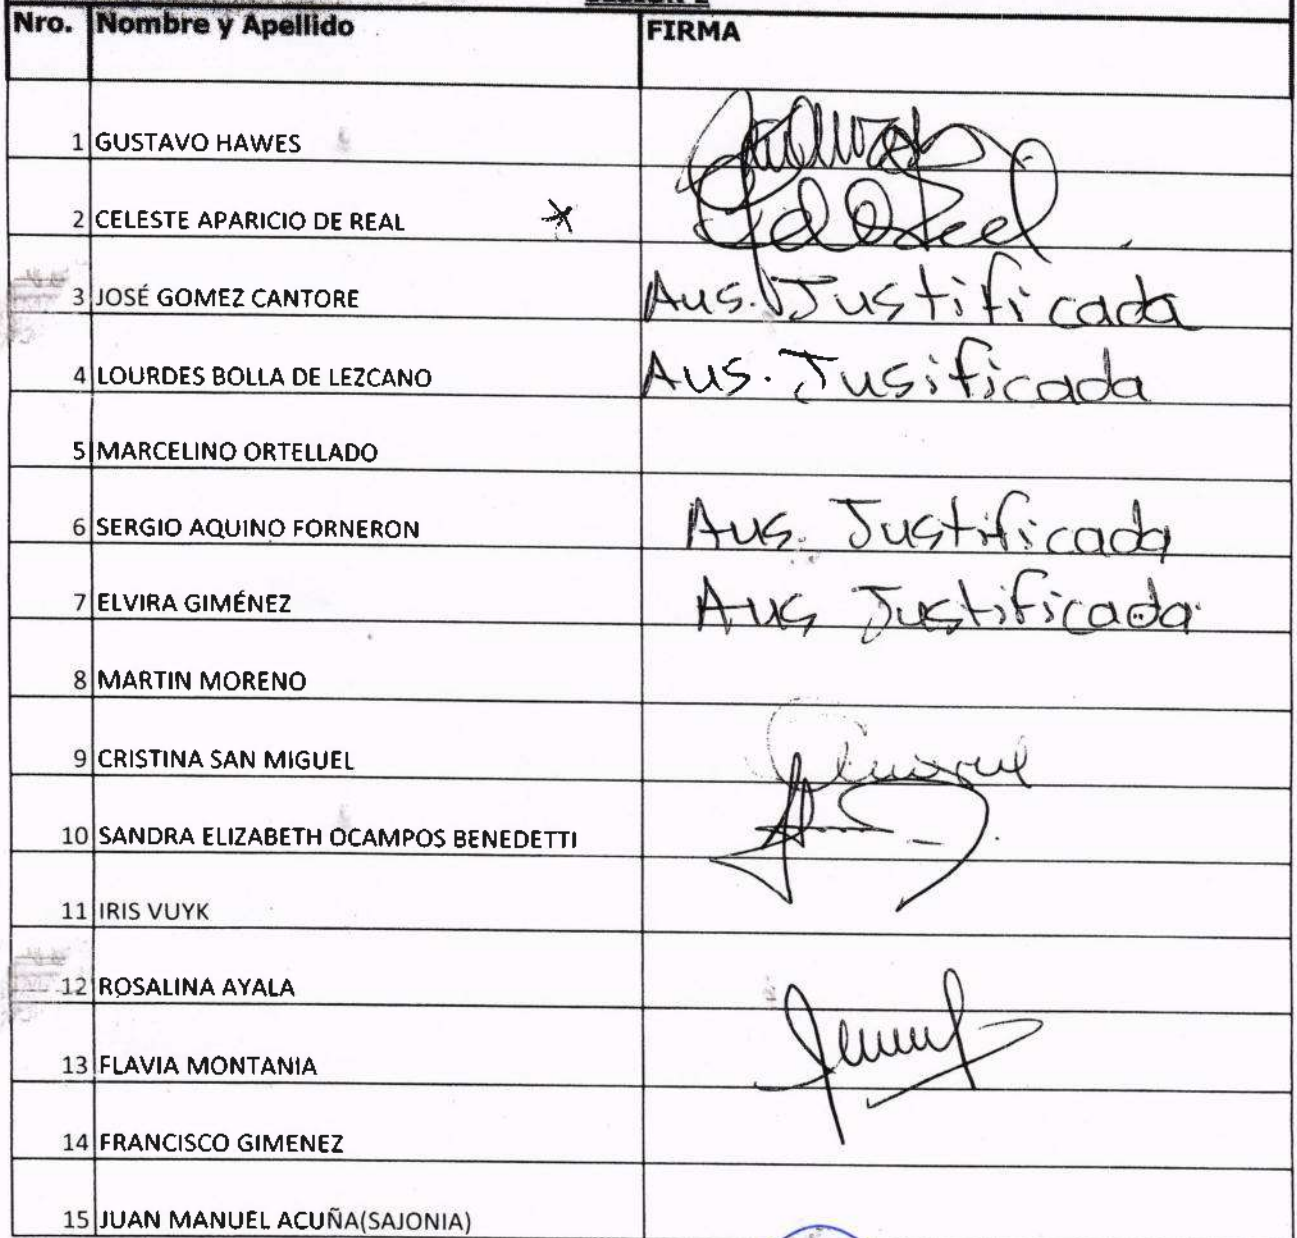 Nro. Nombre y Apellido FIRMA
1 GUSTAVO HAWES
2 CELESTE APARICIO DE REAL
3 JOSÉ GOMEZ CANTORE Aus. Justificada
4 LOURDES BOLLA DE LEZCANO Aus. Jusificada
5 MARCELINO ORTELLADO
6 SERGIO AQUINO FORNERON Aus. Justificada
7 ELVIRA GIMÉNEZ Aus Justificada
8 MARTIN MORENO
9 CRISTINA SAN MIGUEL
10 SANDRA ELIZABETH OCAMPOS BENEDETTI
11 IRIS VUYK
12 ROSALINA AYALA
13 FLAVIA MONTANIA
14 FRANCISCO GIMENEZ
15 JUAN MANUEL ACUÑA(SAJONIA)